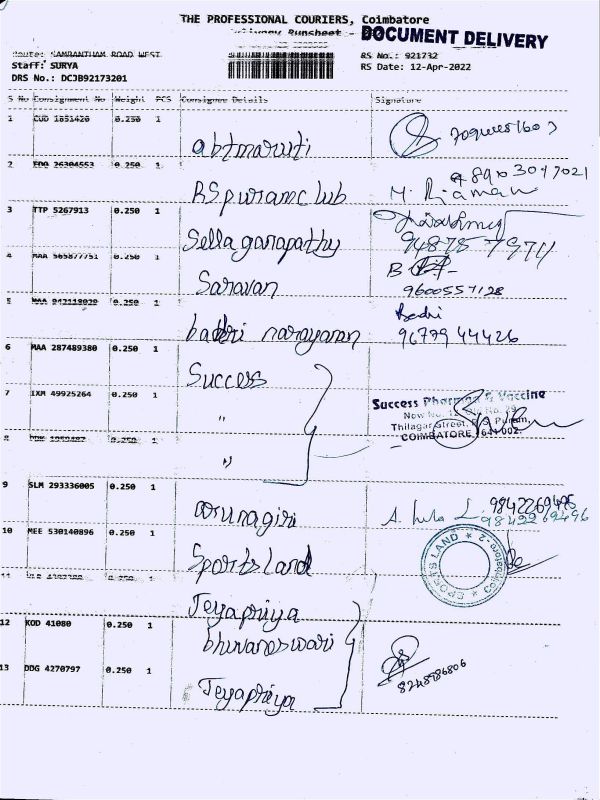 THE PROFESSIONAL COURIERS, Coimbatore
Delivery Runsheet - DOCUMENT DELIVERY
Route: SAMBANTHAM ROAD WEST
Staff: SURYA
DRS No.: DCJB92173201
RS No.: 921732
RS Date: 12-Apr-2022
S No Consignment No Weight PCS Consignee Details Signature
1 0.250 1 abtmaruti
2 0.250 1 RSpuramclub
3 TTP 5267913 0.250 1 Sellaganapathy
4 MAA 565877751 0.250 1 Saravan B
9600557128
5 0.250 1 badri narayanan Badri
96779 44426
6 MAA 287489380 0.250 1 Success
7 IXM 49925264 0.250 1 "
8 0.250 1 "
Success Pharma & Vaccine
Thilagar Street, R.S. Puram,
COIMBATORE 641 002.
9 SLM 293336005 0.250 1 arunagiri A.
9842269496
9842269496
10 MEE 530140896 0.250 1 Sportsland
SPORTS LAND * Coimbatore-2 *
11 0.250 1 Jeyapriya
12 KOD 41080 0.250 1 bhuvaneswari
13 DDG 4270797 0.250 1 Jeyapriya
8248986806